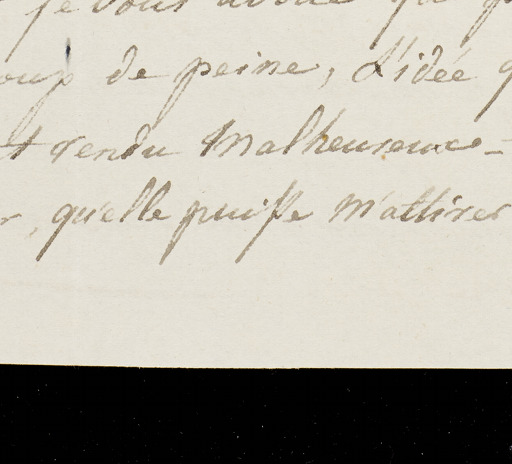 je vous avoue qu
oup de peine, L'idée q
t rendu Malheureuse-
r, qu'elle puisse M'attirer